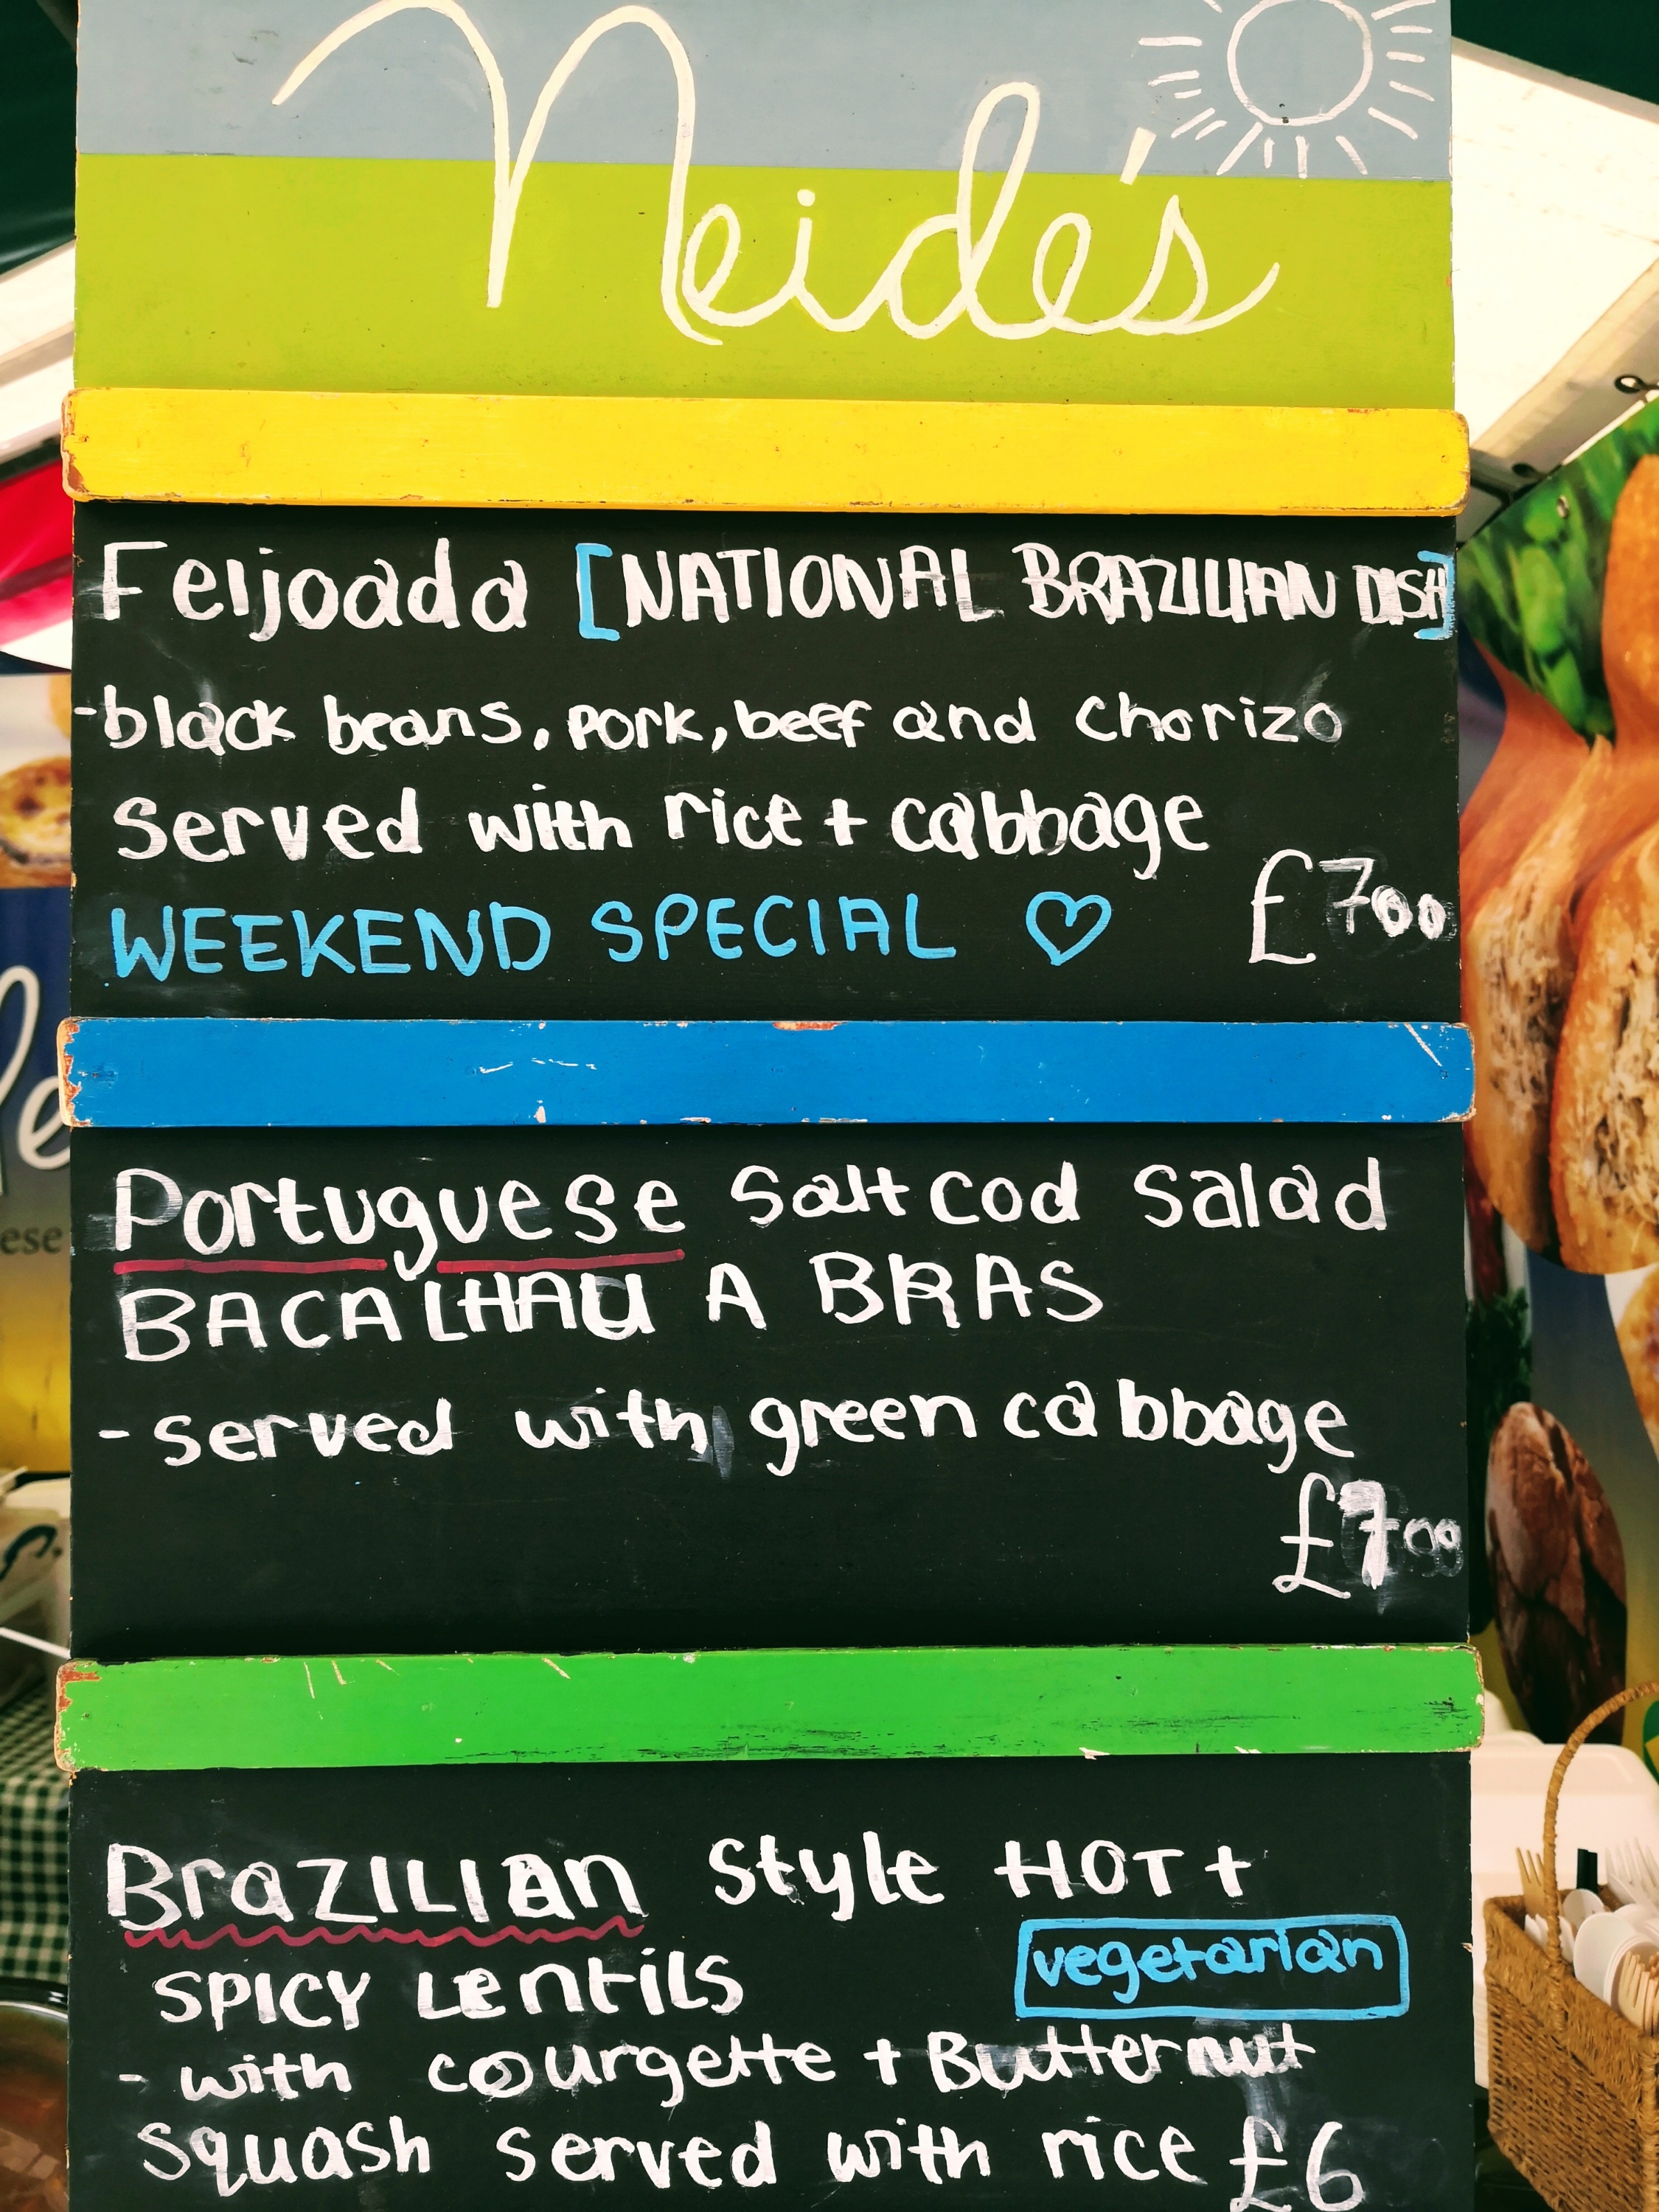 Neide's
Feijoada [NATIONAL BRAZILIAN DISH]
-black beans, pork, beef and chorizo
Served with rice + cabbage
WEEKEND SPECIAL ♡ £700
Portuguese Salt cod Salad
BACALHAU A BRAS
- served with green cabbage
£700
BraZILIAn Style HOT +
SPICY Lentils
vegetarian
- with courgette + Butternut
Squash served with rice £6